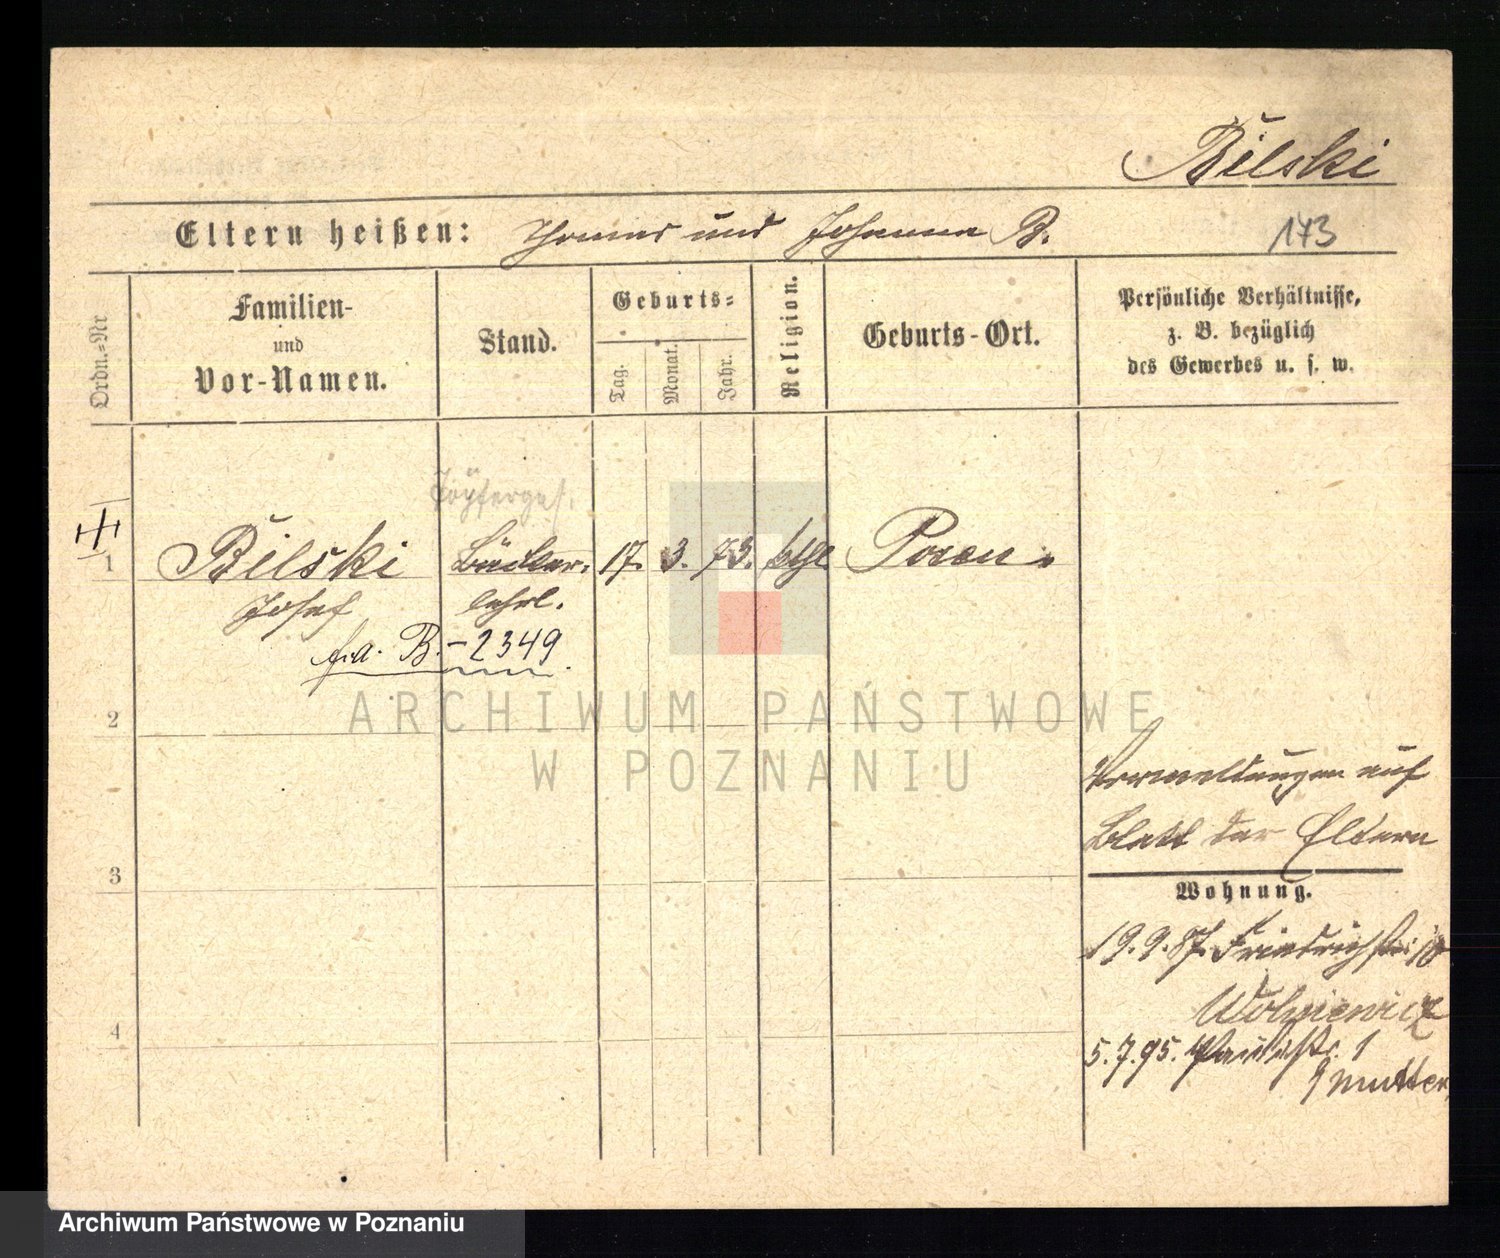 Bilski
Eltern heißen: Thomas und Johanna B.
173
Ordn.=Nr
Familien-
und
Vor-Namen.
Stand.
Geburts=
Tag.
Monat.
Jahr.
Religion.
Geburts-Ort.
Persönliche Verhältnisse,
z. B. bezüglich
des Gewerbes u. s. w.
Töpferges.
1 Bilski 17. 3. 73. kthl Posen.
Josef lehrl.
f. a. B. - 2349
ARCHIWUM PAŃSTWOWE
W POZNANIU
2
auf
Blatt der Eltern
3
Wohnung.
19.9.87. Friedrichstr. 18
4
5.7.95. 1
Mutter
Archiwum Państwowe w Poznaniu